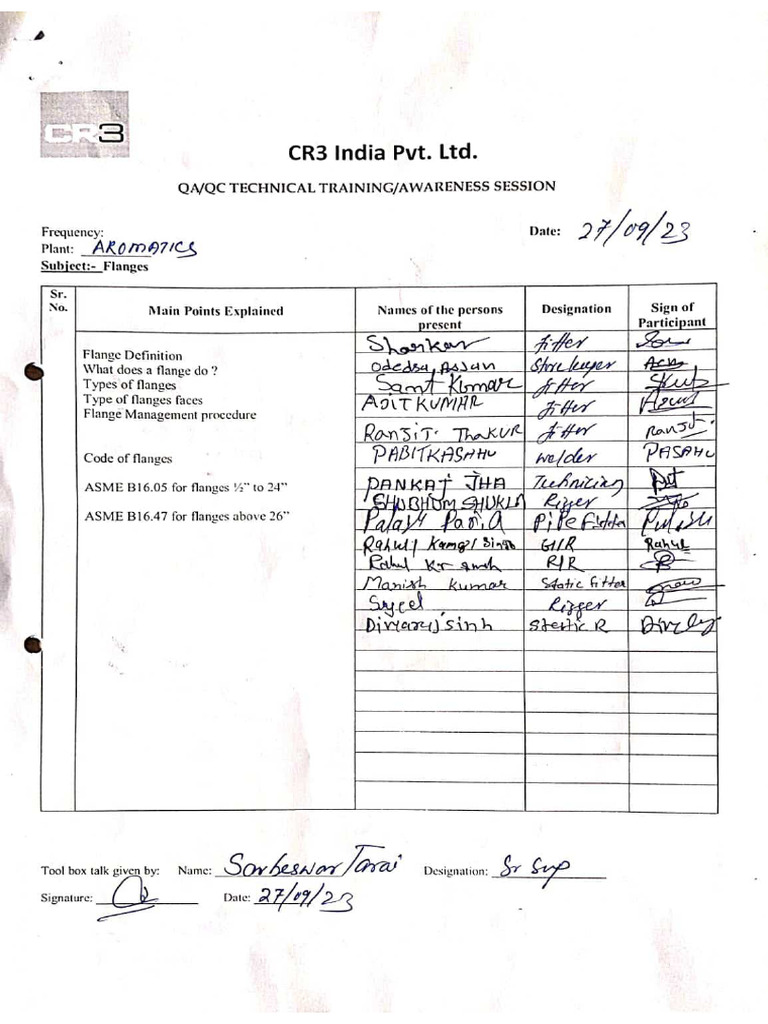 CR3
CR3 India Pvt. Ltd.
QA/QC TECHNICAL TRAINING/AWARENESS SESSION
Frequency:
Date: 27/09/23
Plant: AROMATICS
Subject:- Flanges
Sr. No. Main Points Explained Names of the persons present Designation Sign of Participant
Flange Definition
What does a flange do ?
Types of flanges
Type of flanges faces
Flange Management procedure
Code of flanges
ASME B16.05 for flanges ½” to 24”
ASME B16.47 for flanges above 26”
Shankar fitter
Odedra, Store keeper
Sant Kumar fitter
ADIT KUMAR fitter
RANJIT. THAKUR fitter Ranjit.
PABITKASAHU welder PASAHU
PANKAJ JHA Technician
SHUBHUM SHUKLA Rigger
Palash Paria PiPe Fitter Palash
Rahul Kamal Singh G/R Rahul
Rahul Kr R/R
Manish kumar Static fitter
Rigger
sinh R
Tool box talk given by: Name: Sarbeswar Tarai Designation: Sr Sup
Signature: Date: 27/09/23